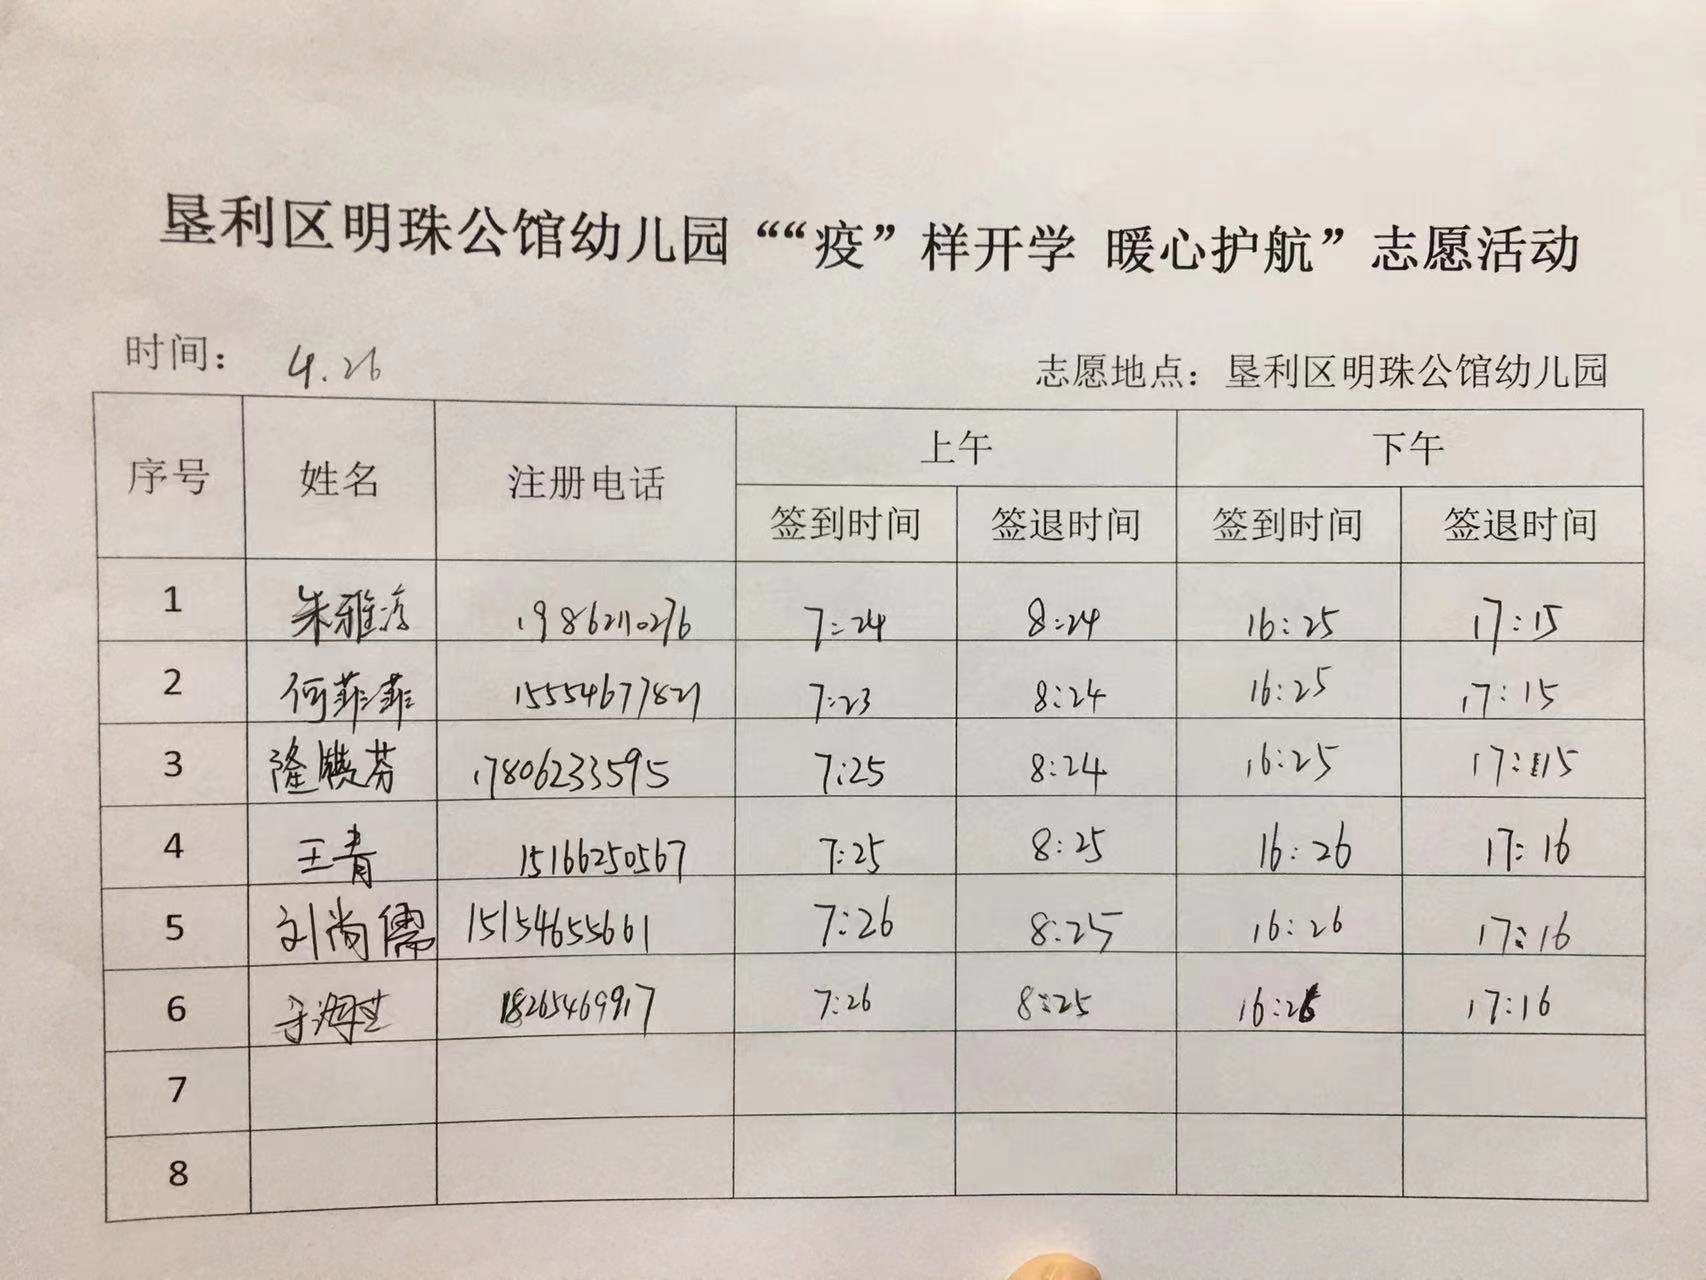 垦利区明珠公馆幼儿园““疫”样开学 暖心护航”志愿活动
时间： 4.26 志愿地点：垦利区明珠公馆幼儿园
序号 姓名 注册电话 上午 下午
签到时间 签退时间 签到时间 签退时间
1 朱雅 19862110276 7:24 8:24 16:25 17:15
2 何菲菲 15554677821 7:23 8:24 16:25 17:15
3 隆 芬 17806233595 7:25 8:24 16:25 17:15
4 王青 15166250567 7:25 8:25 16:26 17:16
5 刘尚儒 15154655661 7:26 8:25 16:26 17:16
6 18265469917 7:26 8:25 16:26 17:16
7
8